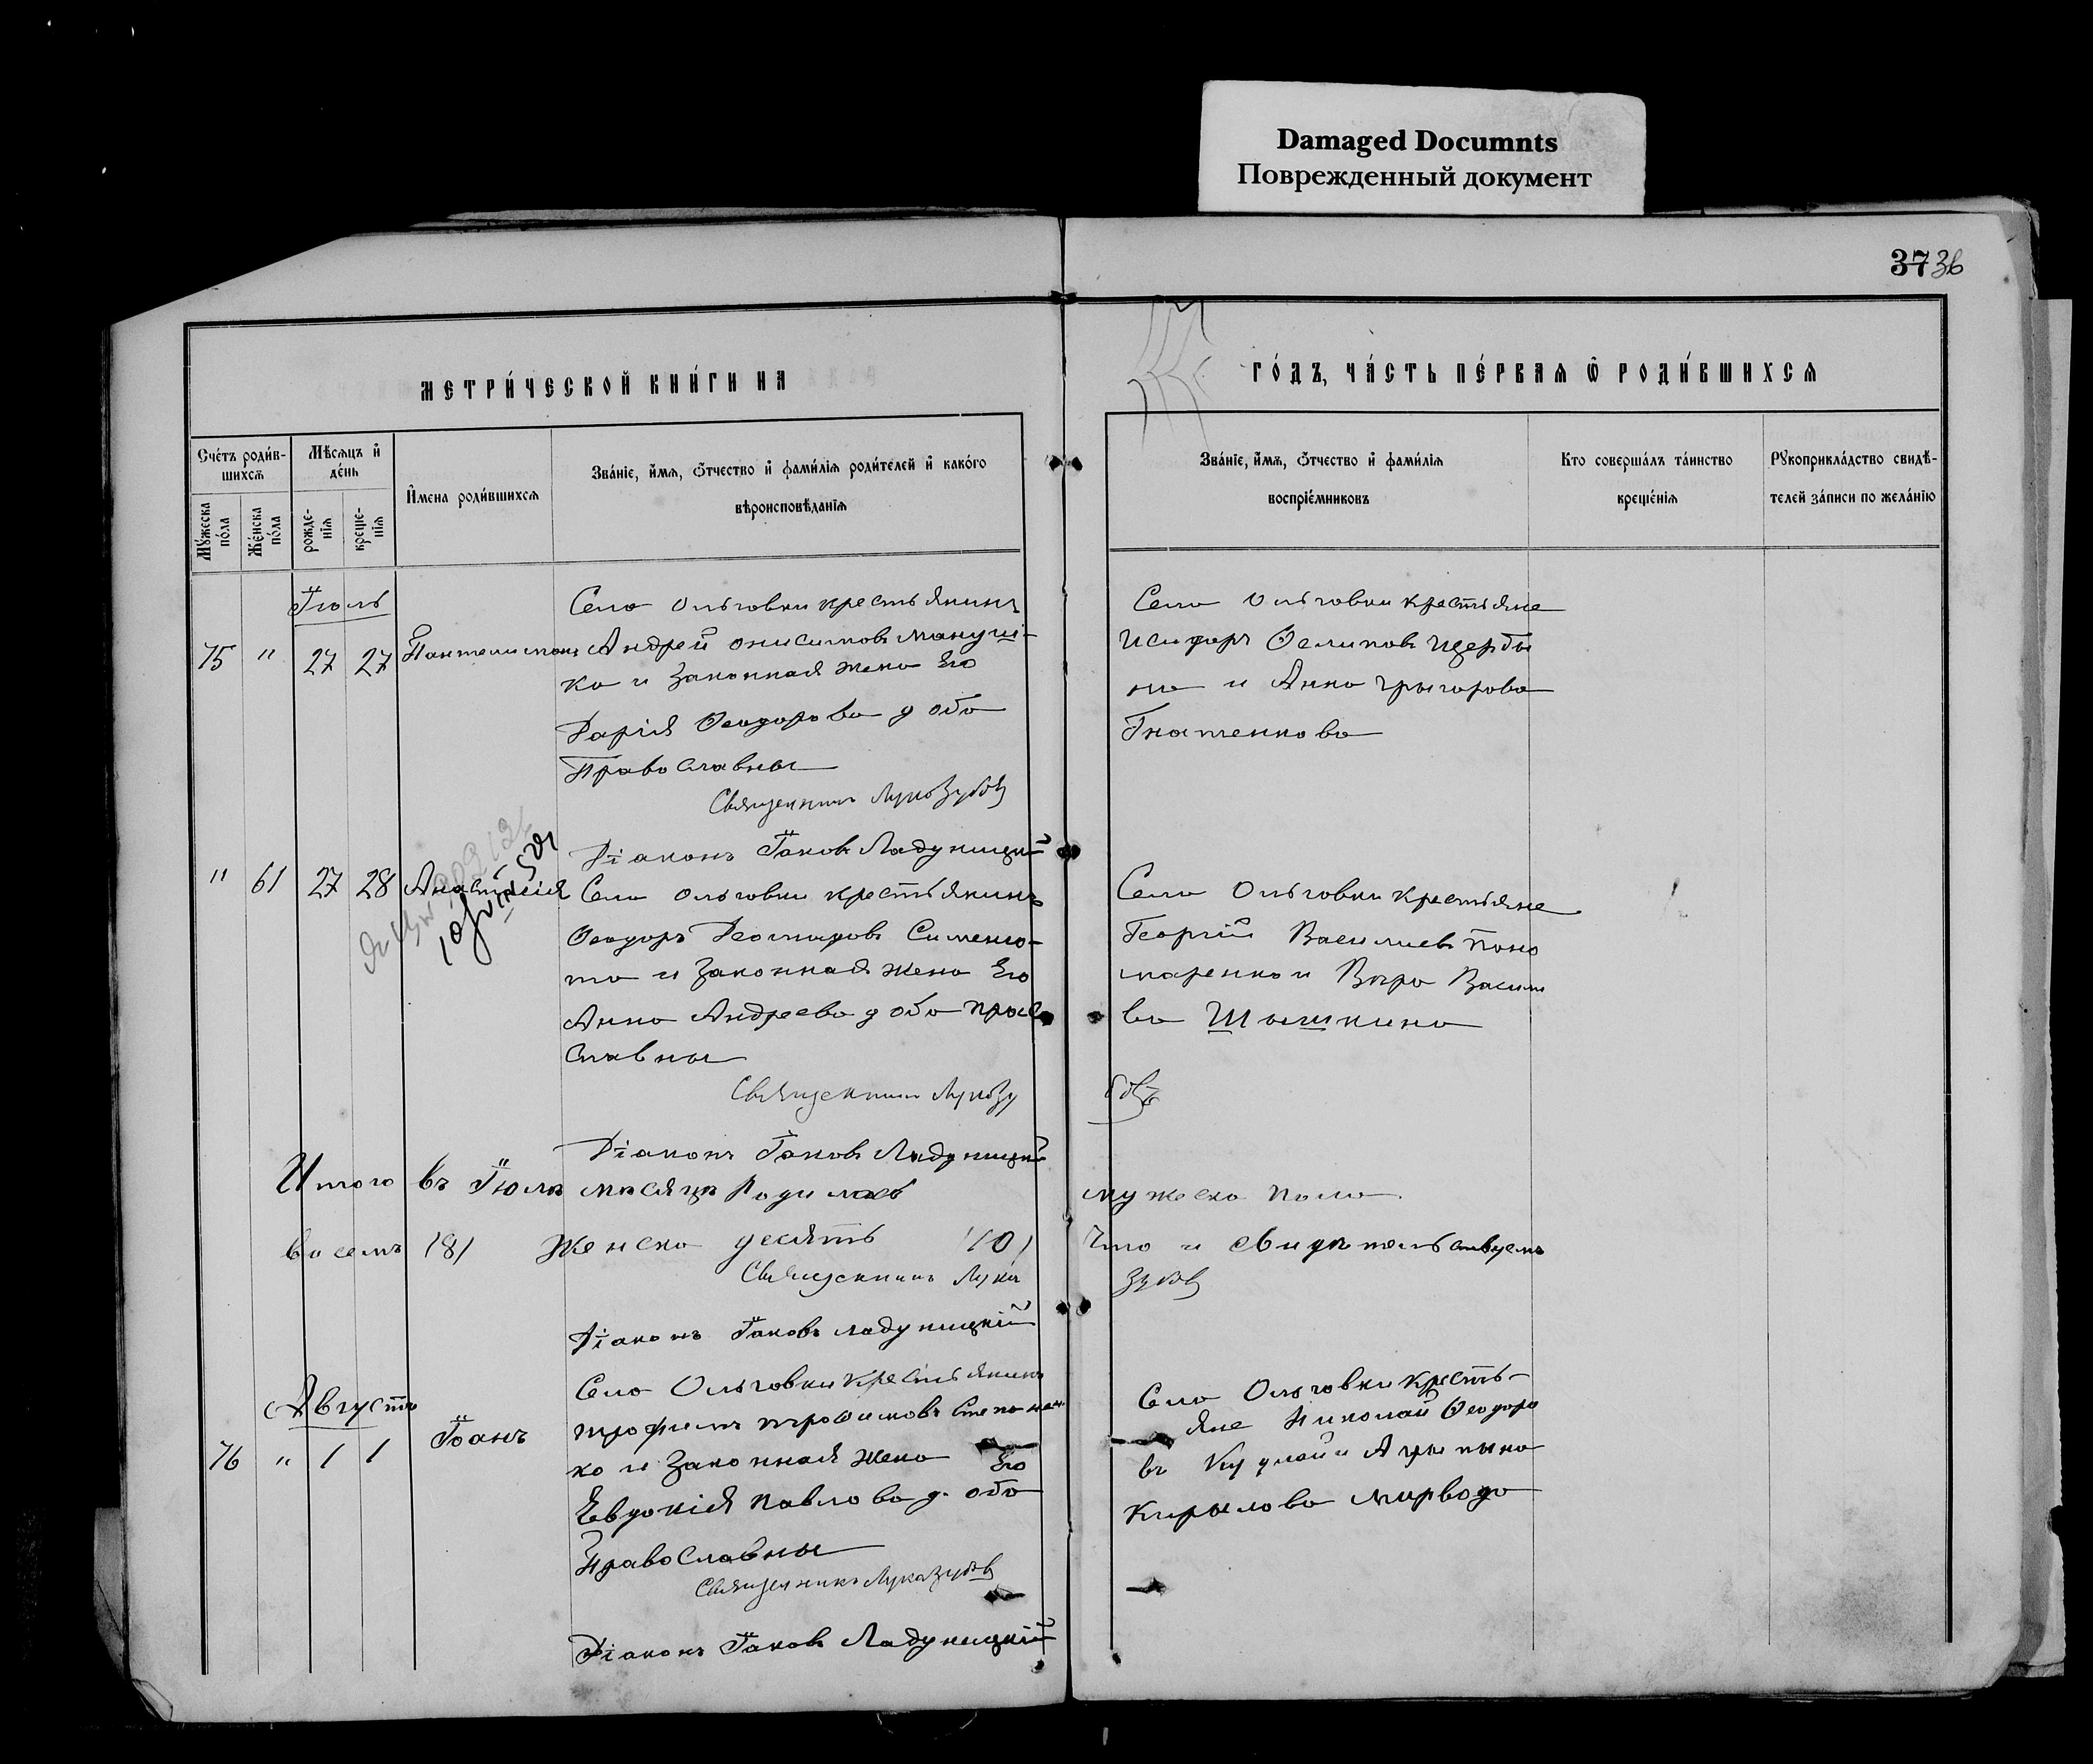 Damaged Documnts
Поврежденный документ
37 36
МЕТРИ́ЧЕСКОЙ КНИ́ГИ НА
ГО́ДЪ, ЧА́СТЬ ПЕ́РВАЯ Ѿ РОДИ́ВШИХСЯ
Сче́тъ роди́в-
шихсѧ
Мѣ́сѧцъ и҆
де́нь
Мꙋ́жеска
по́ла
Же́нска
по́ла
рожде-
нїѧ
креще-
нїѧ
И҆мена роди́вшихсѧ
Зва́нїе, и҆́мѧ, ѻ҆́тчество и҆ фами́лїѧ роди́телей и҆ како́го
вѣроисповѣ́данїѧ
Зва́нїе, и҆́мѧ, ѻ҆́тчество и҆ фами́лїѧ
воспрїе́мниковъ
Кто соверша́лъ та́инство
креще́нїѧ
Рꙋкоприкла́дство свидѣ́-
телей за́писи по жела́нїю
Іюль
75 " 27 27 Пантелимонъ
Села Ольговки крестьянинъ
Андрей Онисимовъ
ка и Законная жена Его
Дарія Ѳеодорова д оба
Православны
Священникъ Лука Зубовъ
Діаконъ Іаковъ Ладуницкій
Села Ольговки крестьяне
Исидоръ Щерби
на и Анна Грыгорова
Гнатенкова
" 61 27 28 Анастасія
Села Ольговки крестьянинъ
Ѳеодоръ
та и Законная жена Его
Анна Андреева д оба право
славны
Священникъ Лука Зу
бовъ
Діаконъ Іаковъ Ладуницкій
Села Ольговки крестьяне
Георгій Василиевъ Поно
маренко и Вѣра Васили
ва Шышкина
Итого въ Іюлѣ мѣсяцѣ Родилось мужеска пола
восемъ (8) Женска десять (10) Что и свидѣтельствуемъ
Священникъ Лука Зубовъ
Діаконъ Іаковъ Ладуницкій
Августъ
76 " 1 1 Іоанъ
Села Ольговки крестьянинъ
Трофимъ Трофимовъ Степанен
ко и Законная жена Его
Евдокія Павлова д. оба
Православны
Священникъ Лука Зубовъ
Діаконъ Іаковъ Ладуницкій
Села Ольговки кресть-
яне Николай Ѳеодоро
въ и
Кирылова